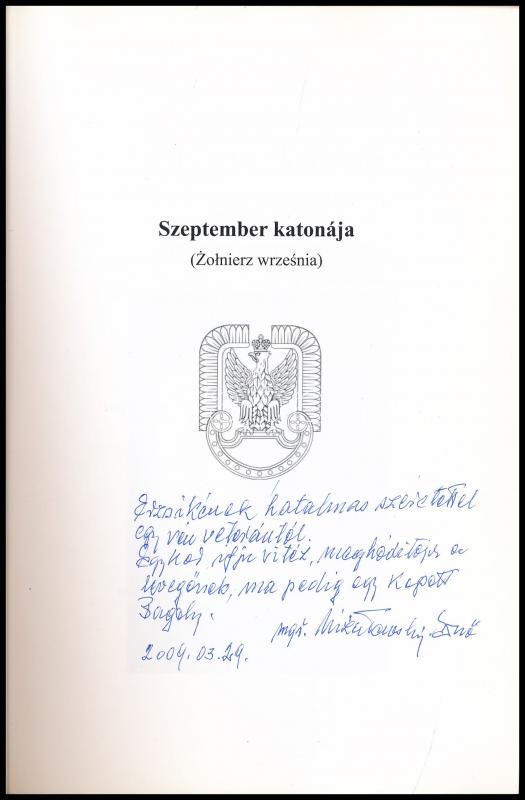 Szeptember katonája
(Żołnierz września)
Erzsikének hatalmas szeretettel
egy vén veterántól.
Egykor ifjú vitéz, meghódítója a
levegőnek, ma pedig egy kopott
Bagoly.
mgr. Mikułowski Ernő
2009.03.29.